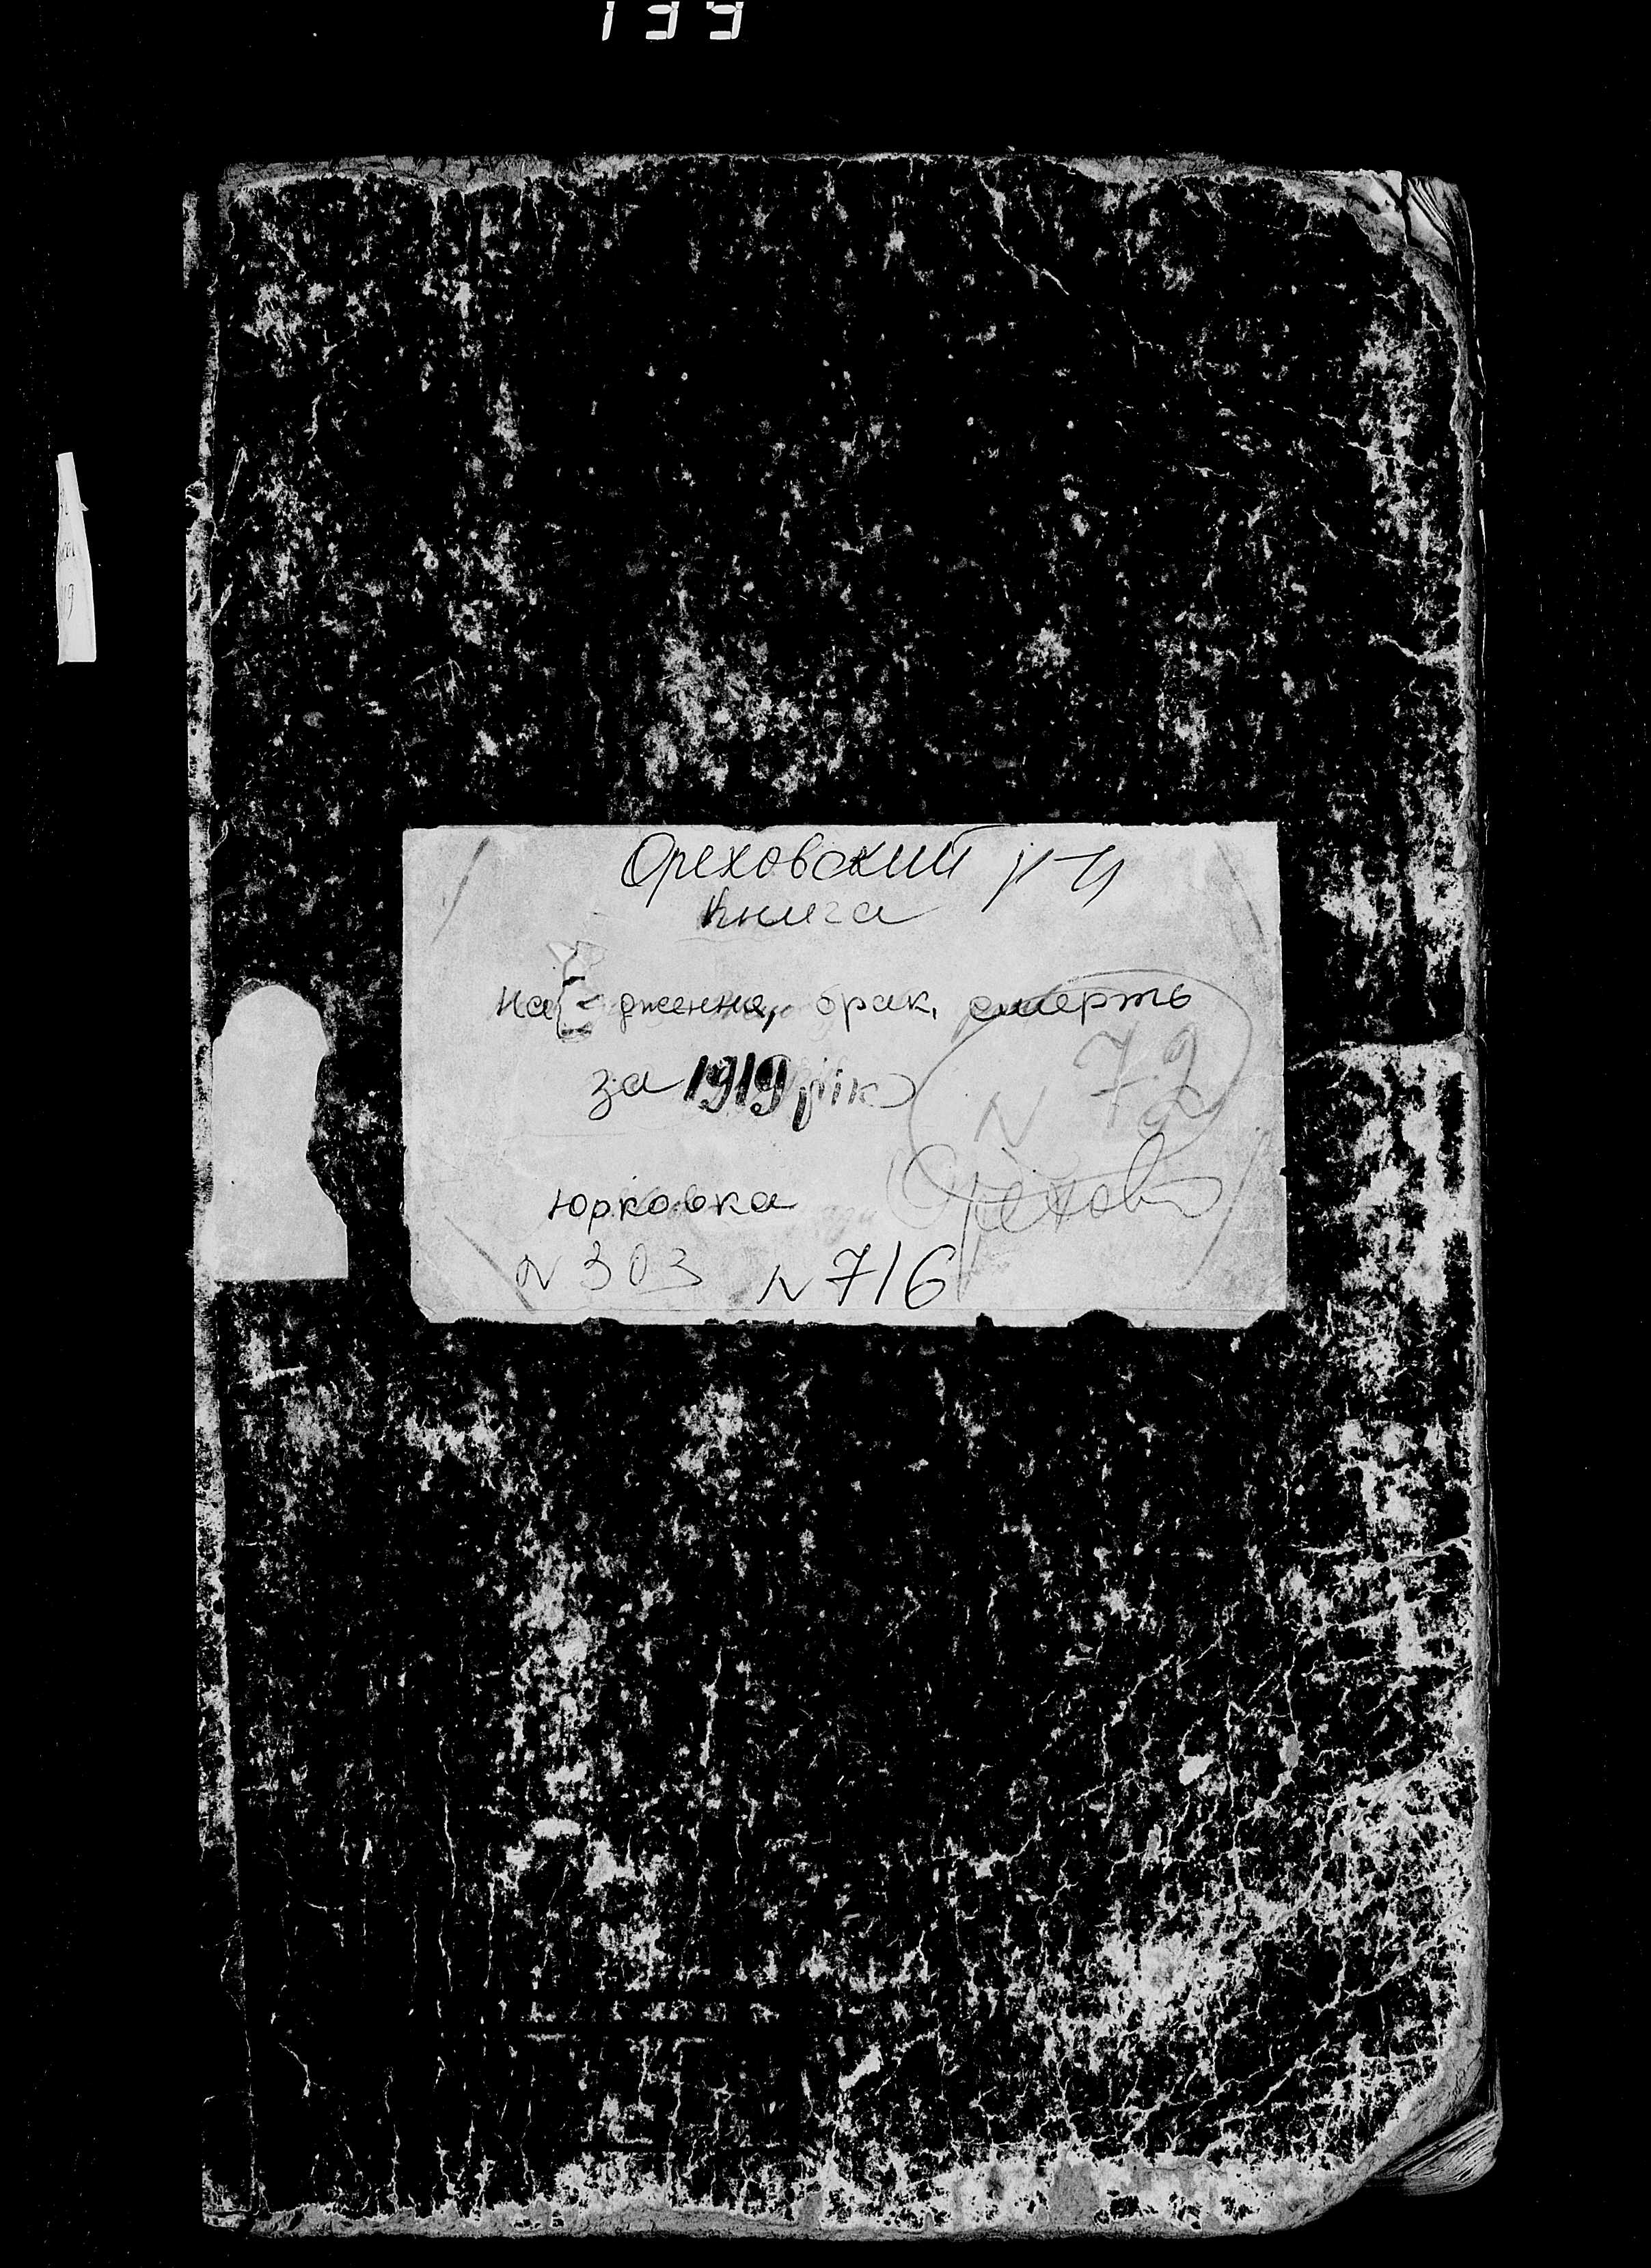 Ореховский р-н
Книга
на дження, брак, смерть
за 1919 рік
N 72
Юрковка
Орехов
N 303 N 716